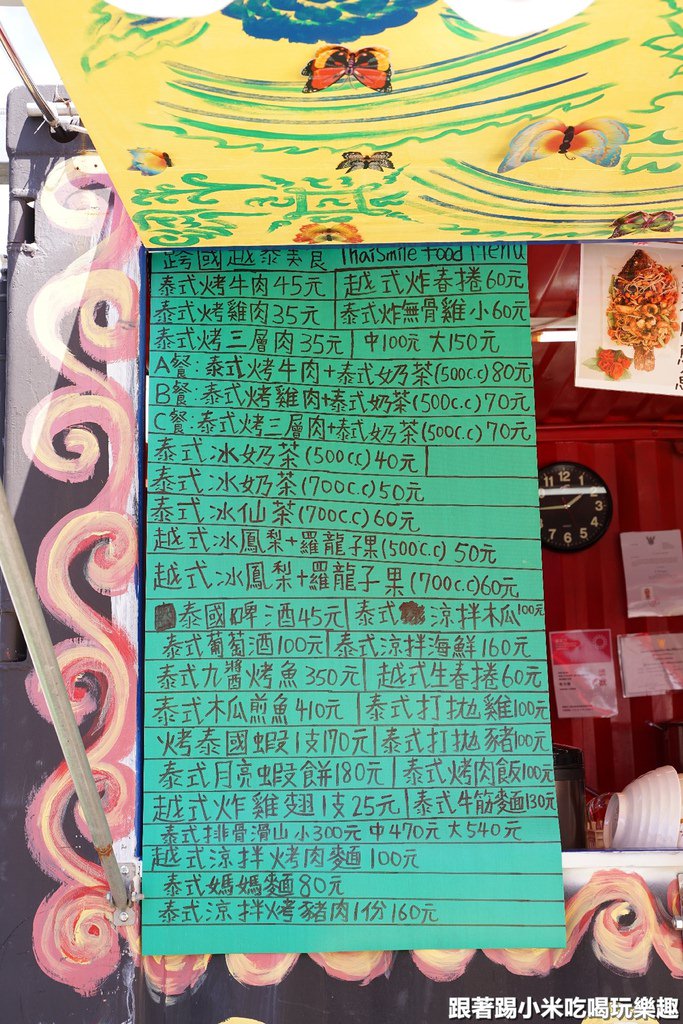 跨國越泰美食 ThaiSmile Food Menu
泰式烤牛肉45元 越式炸春捲60元
泰式烤雞肉35元 泰式炸無骨雞小60元
泰式烤三層肉35元 中100元 大150元
A餐:泰式烤牛肉+泰式奶茶(500c.c)80元
B餐:泰式烤雞肉+泰式奶茶(500c.c)70元
C餐:泰式烤三層肉+泰式奶茶(500c.c)70元
泰式冰奶茶(500cc)40元
泰式冰奶茶(700c.c)50元
泰式冰仙茶(700c.c)60元
越式冰鳳梨+羅龍子果(500c.c)50元
越式冰鳳梨+羅龍子果(700c.c)60元
泰國啤酒45元 泰式涼拌木瓜100元
泰式葡萄酒100元 泰式涼拌海鮮160元
泰式九醬烤魚350元 越式生春捲60元
泰式木瓜煎魚410元 泰式打拋雞100元
烤泰國蝦1支170元 泰式打拋豬100元
泰式月亮蝦餅180元 泰式烤肉飯100元
越式炸雞翅1支25元 泰式牛筋麵130元
泰式排骨滑山小300元 中470元 大540元
越式涼拌烤肉麵100元
泰式媽媽麵80元
泰式涼拌烤豬肉1份160元
12
跟著踢小米吃喝玩樂趣